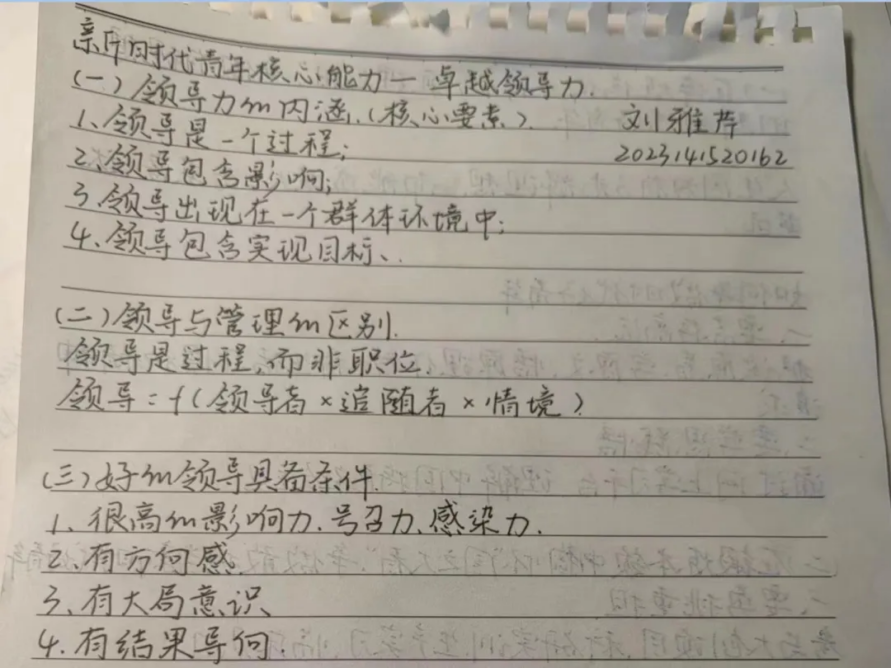 新时代青年核心能力—卓越领导力.
(一)领导力的内涵.(核心要素).
刘雅芹
1、领导是一个过程;
2023141520162
2、领导包含影响;
3、领导出现在一个群体环境中;
4、领导包含实现目标、.
(二)领导与管理的区别.
领导是过程,而非职位.
领导=f(领导者×追随者×情境)
(三)好的领导具备条件.
1、很高的影响力.号召力.感染力.
2、有方向感.
3、有大局意识
4、有结果导向.